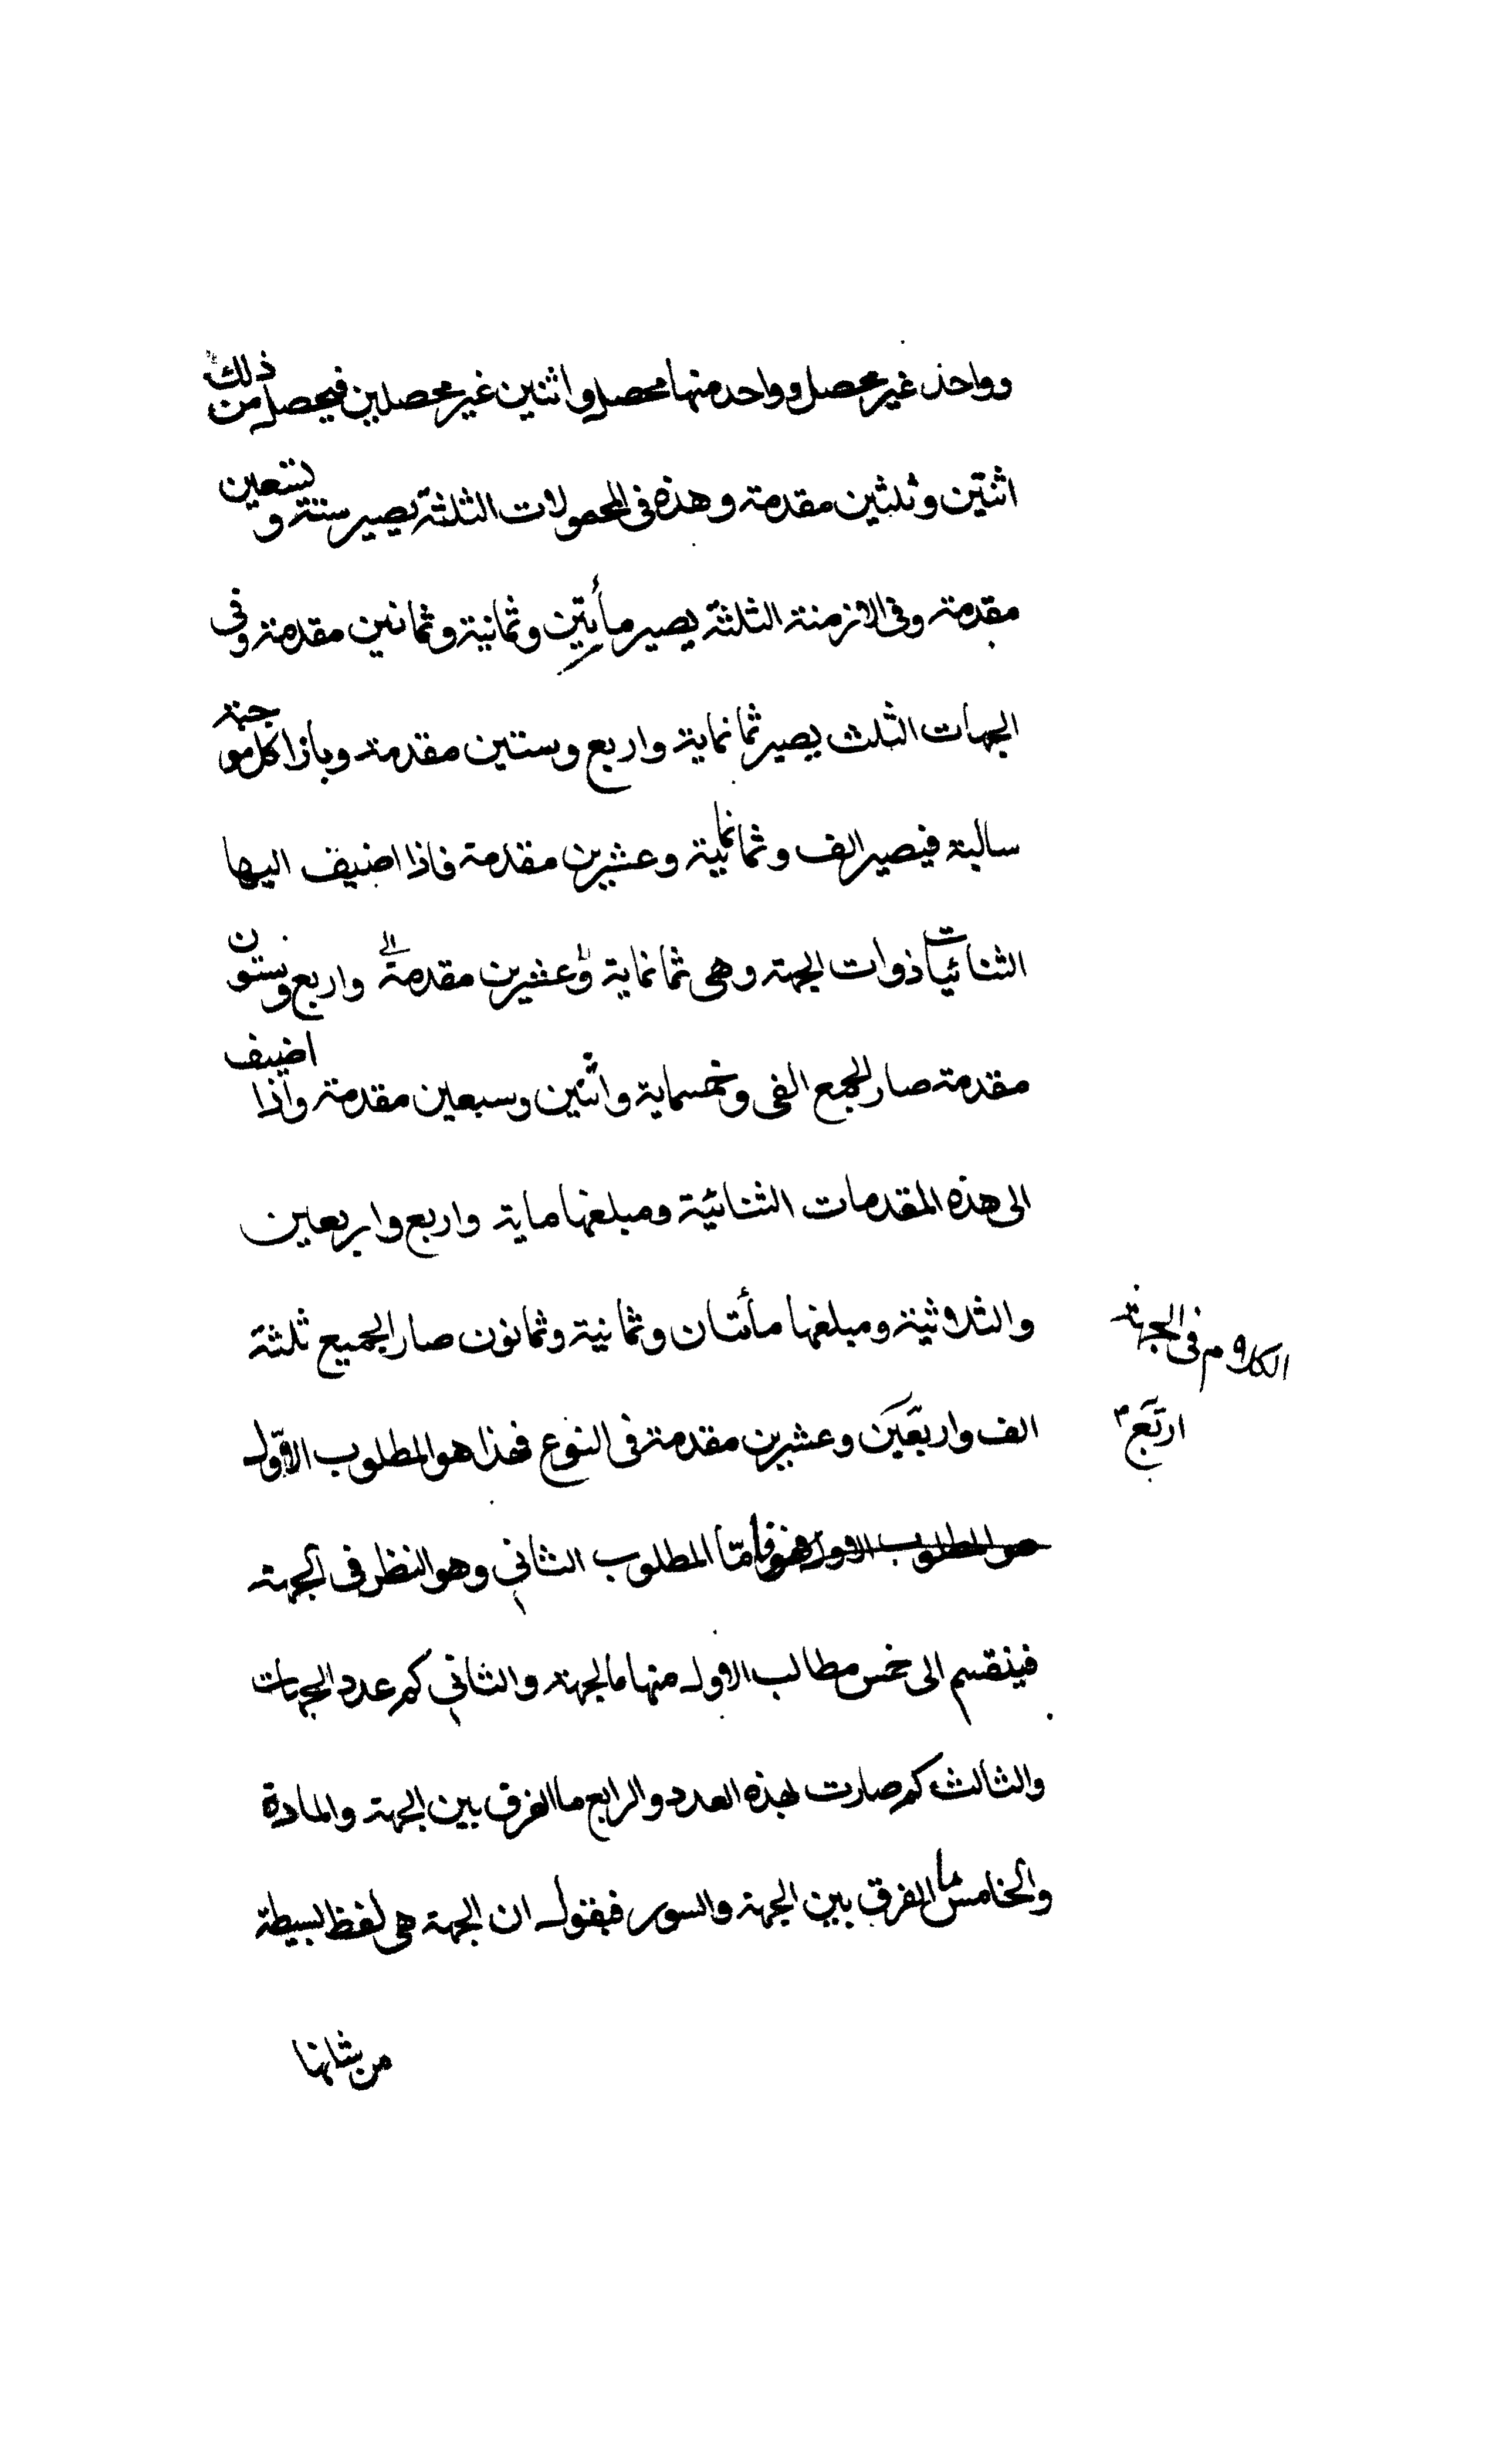 وواحد غير محصل وواحد منها محصل واثنين غير محصلين فيحصل من ذلك
اثنتين وثلثين مقدمة وهذه فى المحمولات الثلثة يصير ستة وتسعين
مقدمة وفى الازمنة الثلثة يصير مأتين وثمانية وثمانين مقدمة وفى
الجهات الثلث يصير ثمانماية واربع وستين مقدمة وبازا كل موجبة
سالبة فيصير الف وثمانمية وعشرين مقدمة فاذا اضيف اليها
الثنائيات ذوات الجهة وهى ثمانماية وعشرين مقدمة واربع وستون
مقدمة صار الجمع الفى وخمسماية واثنين وسبعين مقدمة واذا اضيف
الى هذه المقدمات الثنائية ومبلغها ماية واربع واربعين
والثلاثية ومبلغها مأتان وثمانية وثمانون صار الجميع ثلثة
الف واربعين وعشرين مقدمة فى النوع فهذا هو المطلوب الاول
هو المطلوب الاول فهو فامّا المطلوب الثاني وهو النظر فى الجهة
فينقسم الى خمس مطالب الاول منها ما الجهة والثاني كم عدد الجهات
والثالث كم صارت لهذه العدد والرابع ما الفرق بين الجهة والمادة
والخامس ما الفرق بين الجهة والسور فيقول ان الجهة هى لفظ بسيطة
من شانها
الكلام فى الجهة
اربع